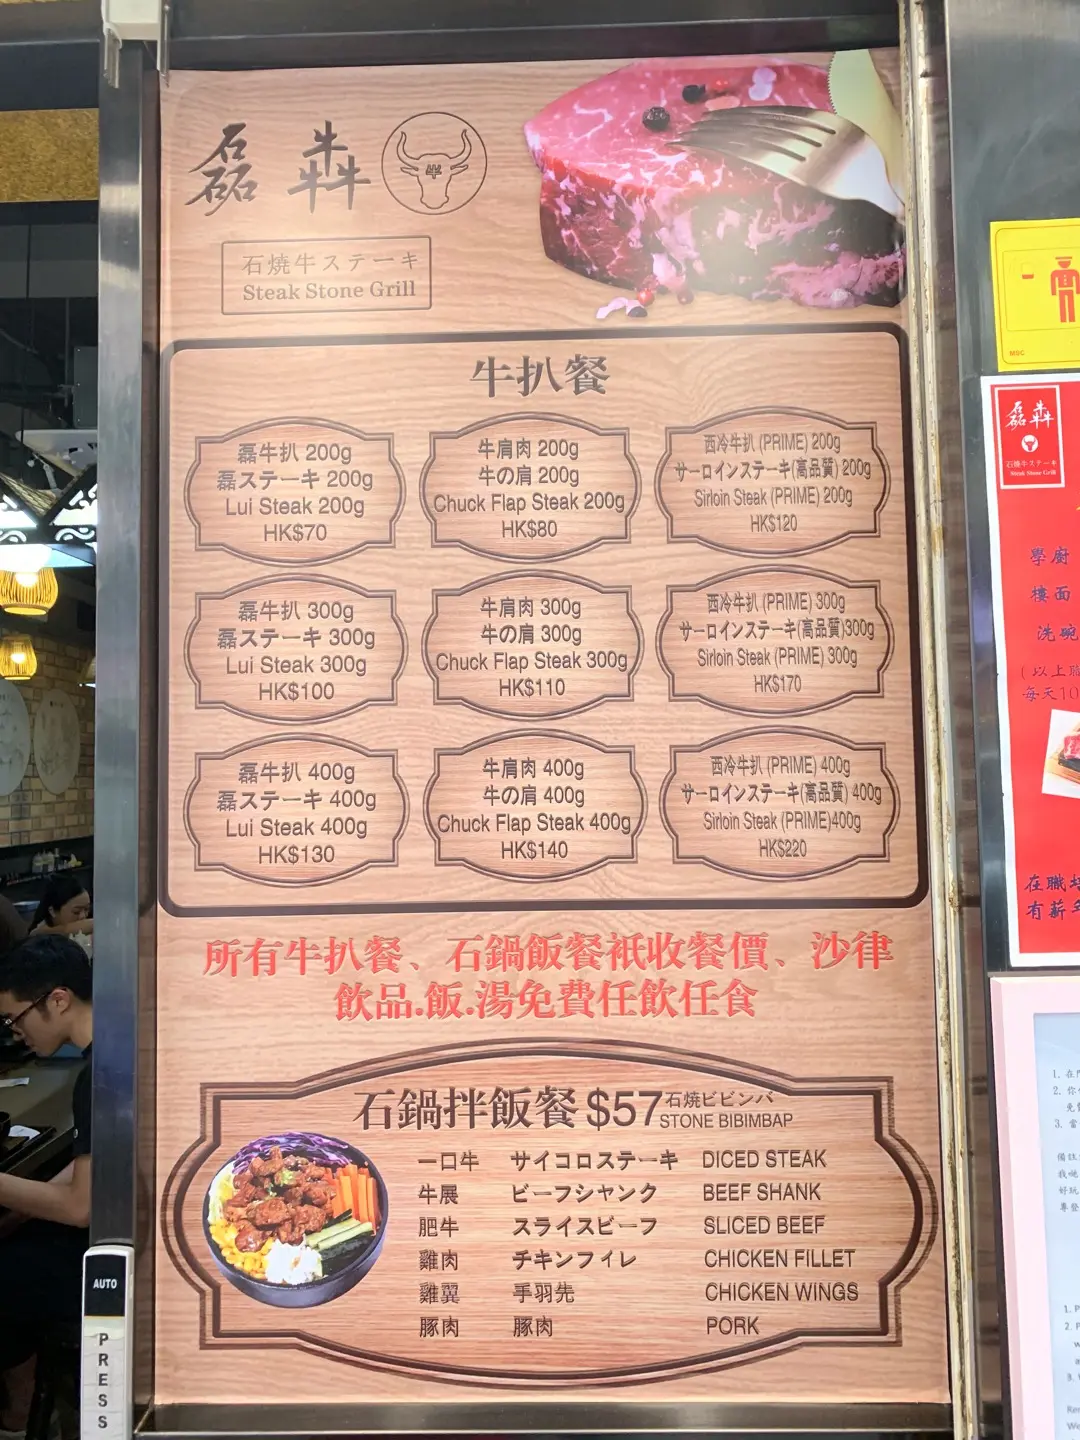 磊 犇
牛
石焼牛ステーキ
Steak Stone Grill
牛扒餐
磊牛扒 200g
磊ステーキ 200g
Lui Steak 200g
HK$70
牛肩肉 200g
牛の肩 200g
Chuck Flap Steak 200g
HK$80
西冷牛扒 (PRIME) 200g
サーロインステーキ(高品質) 200g
Sirloin Steak (PRIME) 200g
HK$120
磊牛扒 300g
磊ステーキ 300g
Lui Steak 300g
HK$100
牛肩肉 300g
牛の肩 300g
Chuck Flap Steak 300g
HK$110
西冷牛扒 (PRIME) 300g
サーロインステーキ(高品質)300g
Sirloin Steak (PRIME) 300g
HK$170
磊牛扒 400g
磊ステーキ 400g
Lui Steak 400g
HK$130
牛肩肉 400g
牛の肩 400g
Chuck Flap Steak 400g
HK$140
西冷牛扒 (PRIME) 400g
サーロインステーキ(高品質) 400g
Sirloin Steak (PRIME)400g
HK$220
所有牛扒餐、石鍋飯餐衹收餐價、沙律
飲品.飯.湯免費任飲任食
石鍋拌飯餐 $57 石焼ビビンバ
STONE BIBIMBAP
一口牛 サイコロステーキ DICED STEAK
牛展 ビーフシャンク BEEF SHANK
肥牛 スライスビーフ SLICED BEEF
雞肉 チキンフィレ CHICKEN FILLET
雞翼 手羽先 CHICKEN WINGS
豚肉 豚肉 PORK
AUTO
PRESS
MDC
磊犇
石焼牛ステーキ
Steak Stone Grill
學廚
樓面
洗碗
(以上職
每天10
在職培
有薪年
1. 在門
2. 你
免
3. 當
備註
我哋
好玩
專登
1. P
2. P
w
a
3.
Re
We